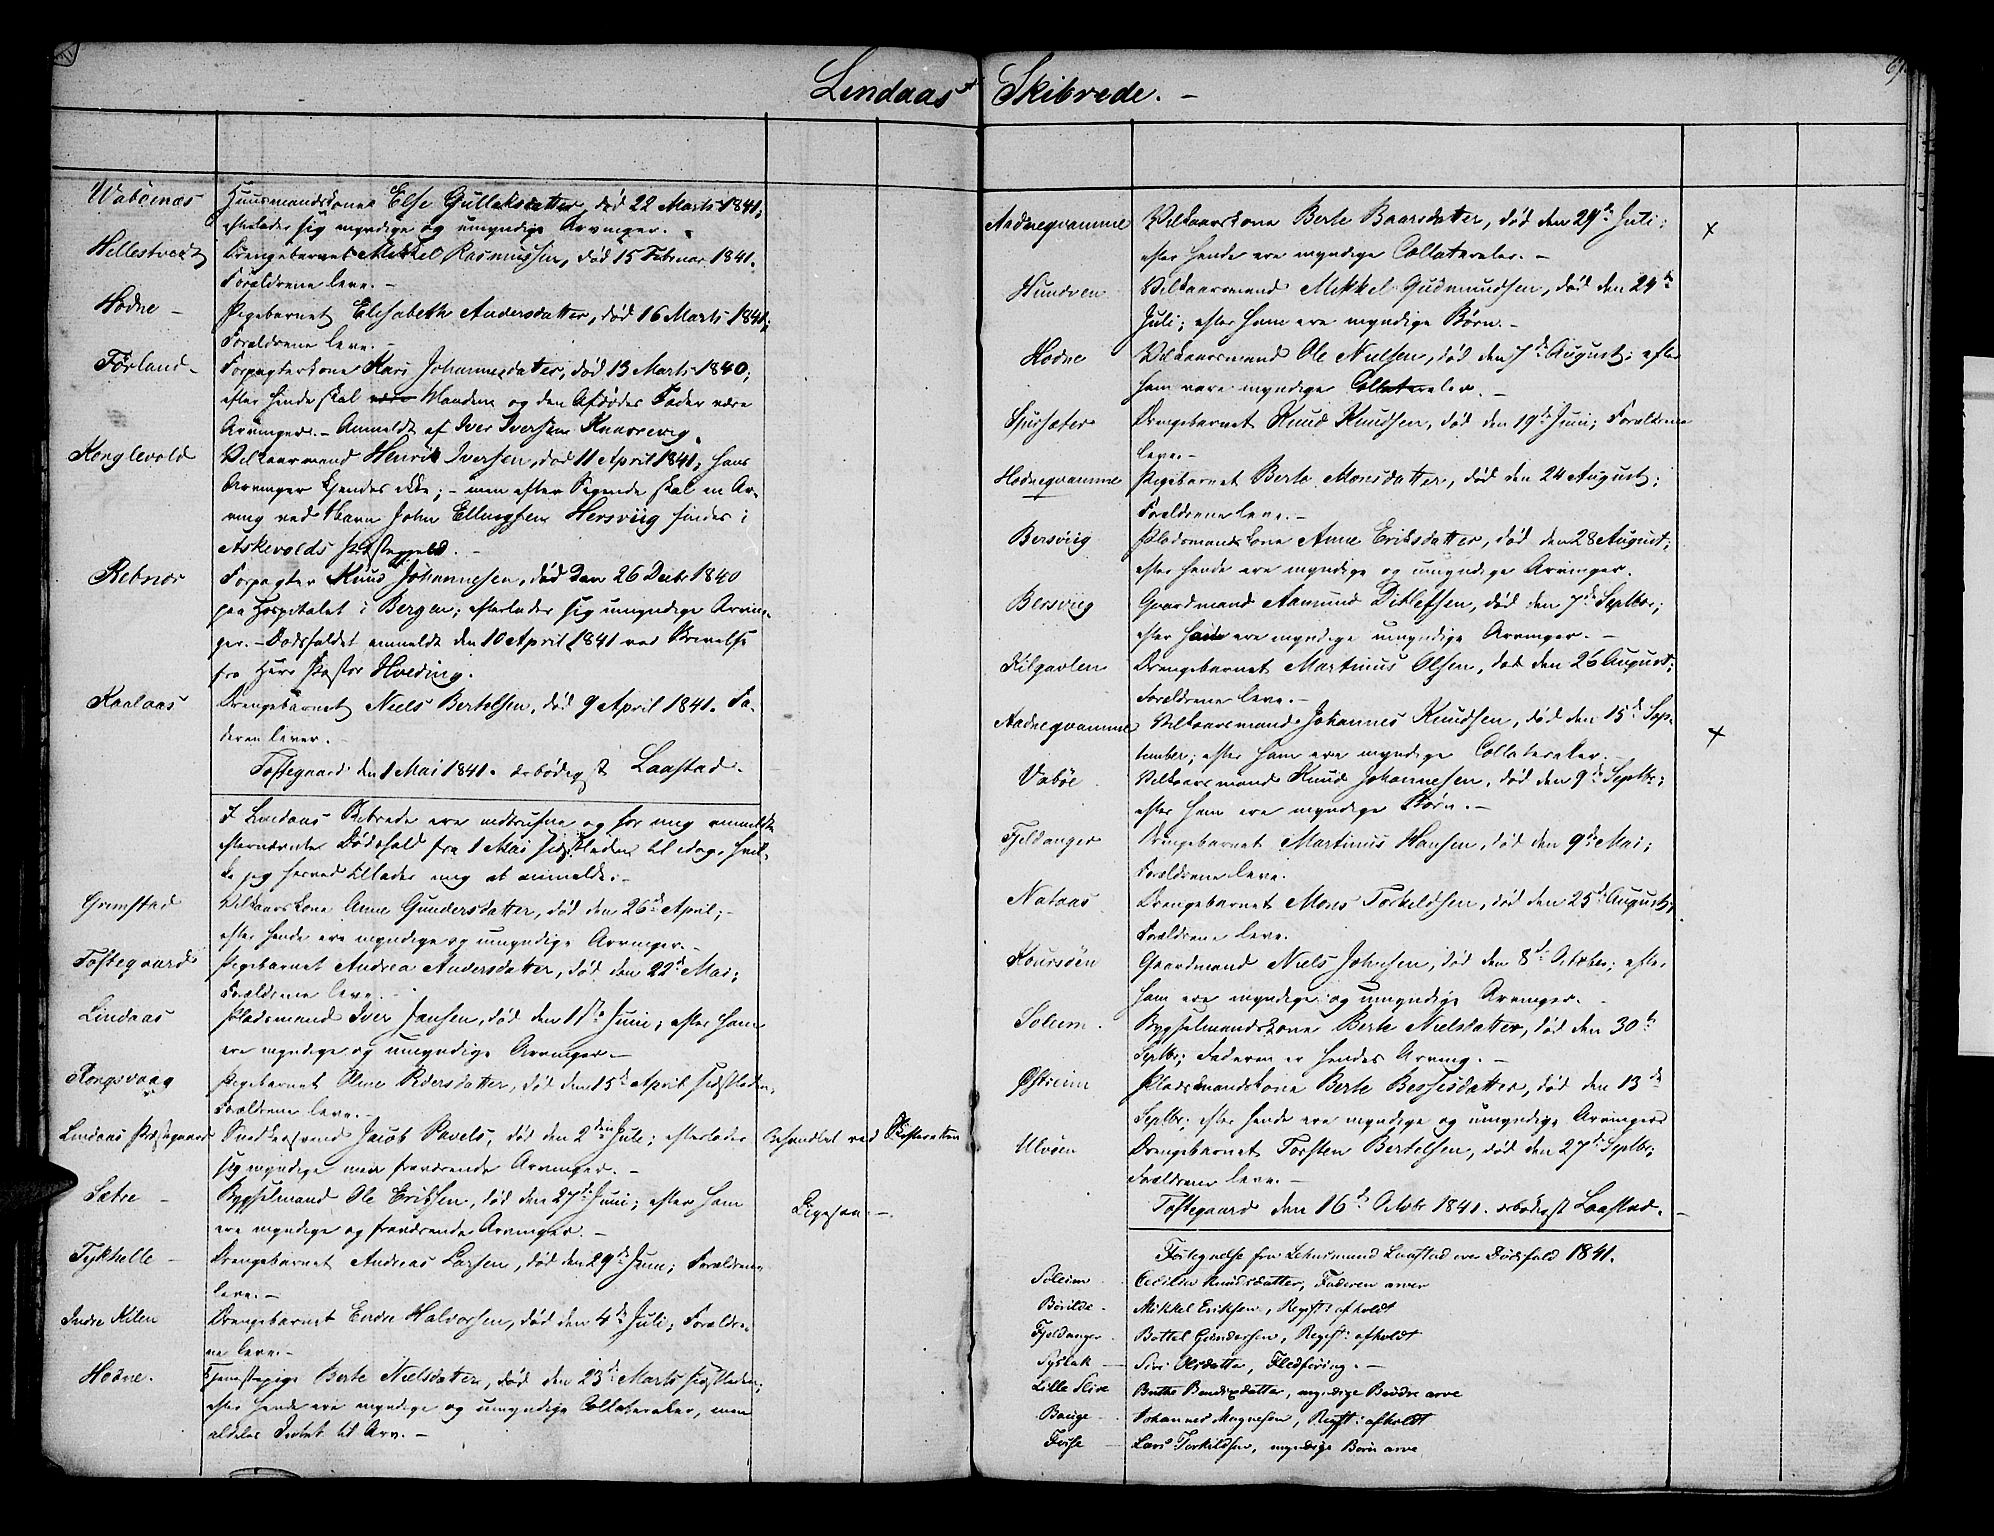 Lindaas Skibrede. –
Wabøenæs Huusmandskone Else Gullaksdatter, død 22 Marts 1841;
efterlader sig myndige og umyndige Arvinger.
Hellestvedt Drengebarnet Mikkel Rasmussen, død 15 Februar 1841.
Forældrene leve. –
Hodne – Pigebarnet Elisabeth Andersdatter, død 16 Marts 1841;
Forældrene leve. –
Førland – Forpagterkone Kari Johannesdatter, død 13 Marts 1840;
efter hende skal være Manden og den Afdødes Fader være
Arvinger. – Anmeldt af Iver Iversen Knarrevig.
Konglevold Vilkaarmand Henrik Iversen, død 11 April 1841; hans
Arvinger kjendes ikke; – men efter Sigende skal en Ar-
ving ved Navn John Ellingsen Hersviig findes i
Askevolds Præstegjeld. –
Rebnor Forpagter Knud Johannesen, død den 26 Decbr 1840
paa Hospitalet i Bergen; efterlader sig umyndige Arvin-
ger. – Dødsfaldet anmeldt den 10 April 1841 ved Skrivelse
fra Herr Pastor Hveding.
Kaalaas Drengebarnet Niels Bertelsen, død 9 April 1841. Fa-
deren lever. –
Toftegaard den 1 Mai 1841. ærbødigst Laastad.
I Lindaas Skibrede ere indtrufne og for mig anmeldte
efternævnte Dødsfald fra 1 Mai sidstleden til idag, hvil-
ke jeg herved tillader mig at anmelde: –
Grimstad Vilkaarskone Anne Gundersdatter, død den 26de April; –
efter hende ere myndige og umyndige Arvinger. –
Toftegaard Pigebarnet Andrea Andersdatter, død den 22d Mai;
Forældrene leve. –
Lindaas Pladsmand Iver Jansen, død den 11te Juni; efter ham
ere myndige og umyndige Arvinger. –
Rongsvaag Pigebarnet Oline Pedersdatter, død den 15de April sidstleden,
Forældrene leve. –
Lindaas Præstegaard Snedkersvend Jacob Pavels, død den 2den Juli; efterlader Behandlet ved Skifteretten
sig myndige men fraværende Arvinger. –
Sætre – Bygselmand Ole Eriksen, død den 27de Juni; efter ham Ligesaa. –
ere myndige og fraværende Arvinger. –
Tykhelle – Drengebarnet Andreas Larsen, død den 29de Juni; Forældrene
leve. –
Indre Kilen Drengebarnet Endre Halvorsen, død den 4de Juli; Forældre-
ne leve. –
Hodne. Tjenestepige Berte Nielsdatter, død den 23de Marts sidstleden;
efter hende ere myndige og umyndige Collateraler, men
aldeles Intet til Arv. –
Aadneqvamme Vilkaarskone Berte Baarsdatter, død den 29de Juli; x
efter hende ere myndige Collateraler. –
Hundven Vilkaarsmand Mikkel Gudmundsen, død den 29de
Juli; efter ham ere myndige Børn. –
Hodne Vilkaarsmand Ole Nielsen, død den 7de August; efter
ham være myndige Collateraler. –
Spursæter Drengebarnet Knud Knudsen, død den 19de Juni; Forældrene
leve. –
Hodneqvamme Pigebarnet Berte Monsdatter, død den 24 August;
Forældrene leve. –
Bersviig Pladsmandskone Anne Eriksdatter, død den 28 August;
efter hende ere myndige og umyndige Arvinger.
Bersviig Gaardmand Aamund Ditlefsen, død den 7de Septbr;
efter ham ere myndige umyndige Arvinger. –
Kilgavlen Drengebarnet Martinus Olsen, død den 26 August;
Forældrene leve. –
Aadneqvamme Vilkaarsmand Johannes Knudsen, død den 15de Sep- x
tember; efter ham ere myndige Collateraler.
Vabøe Vilkaarsmand Knud Johannesen, død den 9de Septbr;
efter ham ere myndige Børn. –
Fjeldanger Drengebarnet Martinus Hansen, død den 9de Mai;
Forældrene leve.
Nataas Drengebarnet Mons Torkildsen, død den 25de August;
Forældrene leve.
Gaardmand Niels Johnsen, død den 8de October; efter
ham ere myndige og umyndige Arvinger. –
Soleim. Bygselmandskone Berte Nielsdatter, død den 30te
Septbr; Faderen er hendes Arving. –
Østreim Pladsmandskone Berte Bessesdatter, død den 13de
Septbr; efter hende ere myndige og umyndige Arvinger
Ulvøen Drengebarnet Torsten Bertelsen, død den 27de Septbr;
Forældrene leve. –
Toftegaard den 16de Octobr 1841. ærbødigst Laastad. –
Fortegnelse fra Lehnsmand Laastad over Dødsfald 1841.
Soleim Cecilie Knudsdatter, Faderen arver
Børilde. Mikkel Eriksen, Regist: afholdt
Fjeldanger Bottel Gundersen, Regist: afholdt
Syslak – Siri Olsdatter, Fledføring. –
Lille Bendixdatter, myndige Brødre arve
Bauge – Johannes Magnesen, Regist: afholdt
Lars Torkildsen, myndige Børn arve